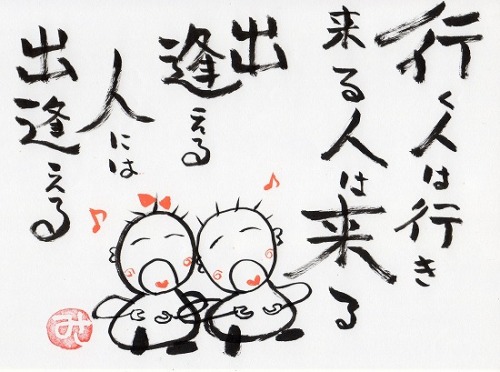 行く人は行き
来る人は来る
出逢える
人には
出逢える
み